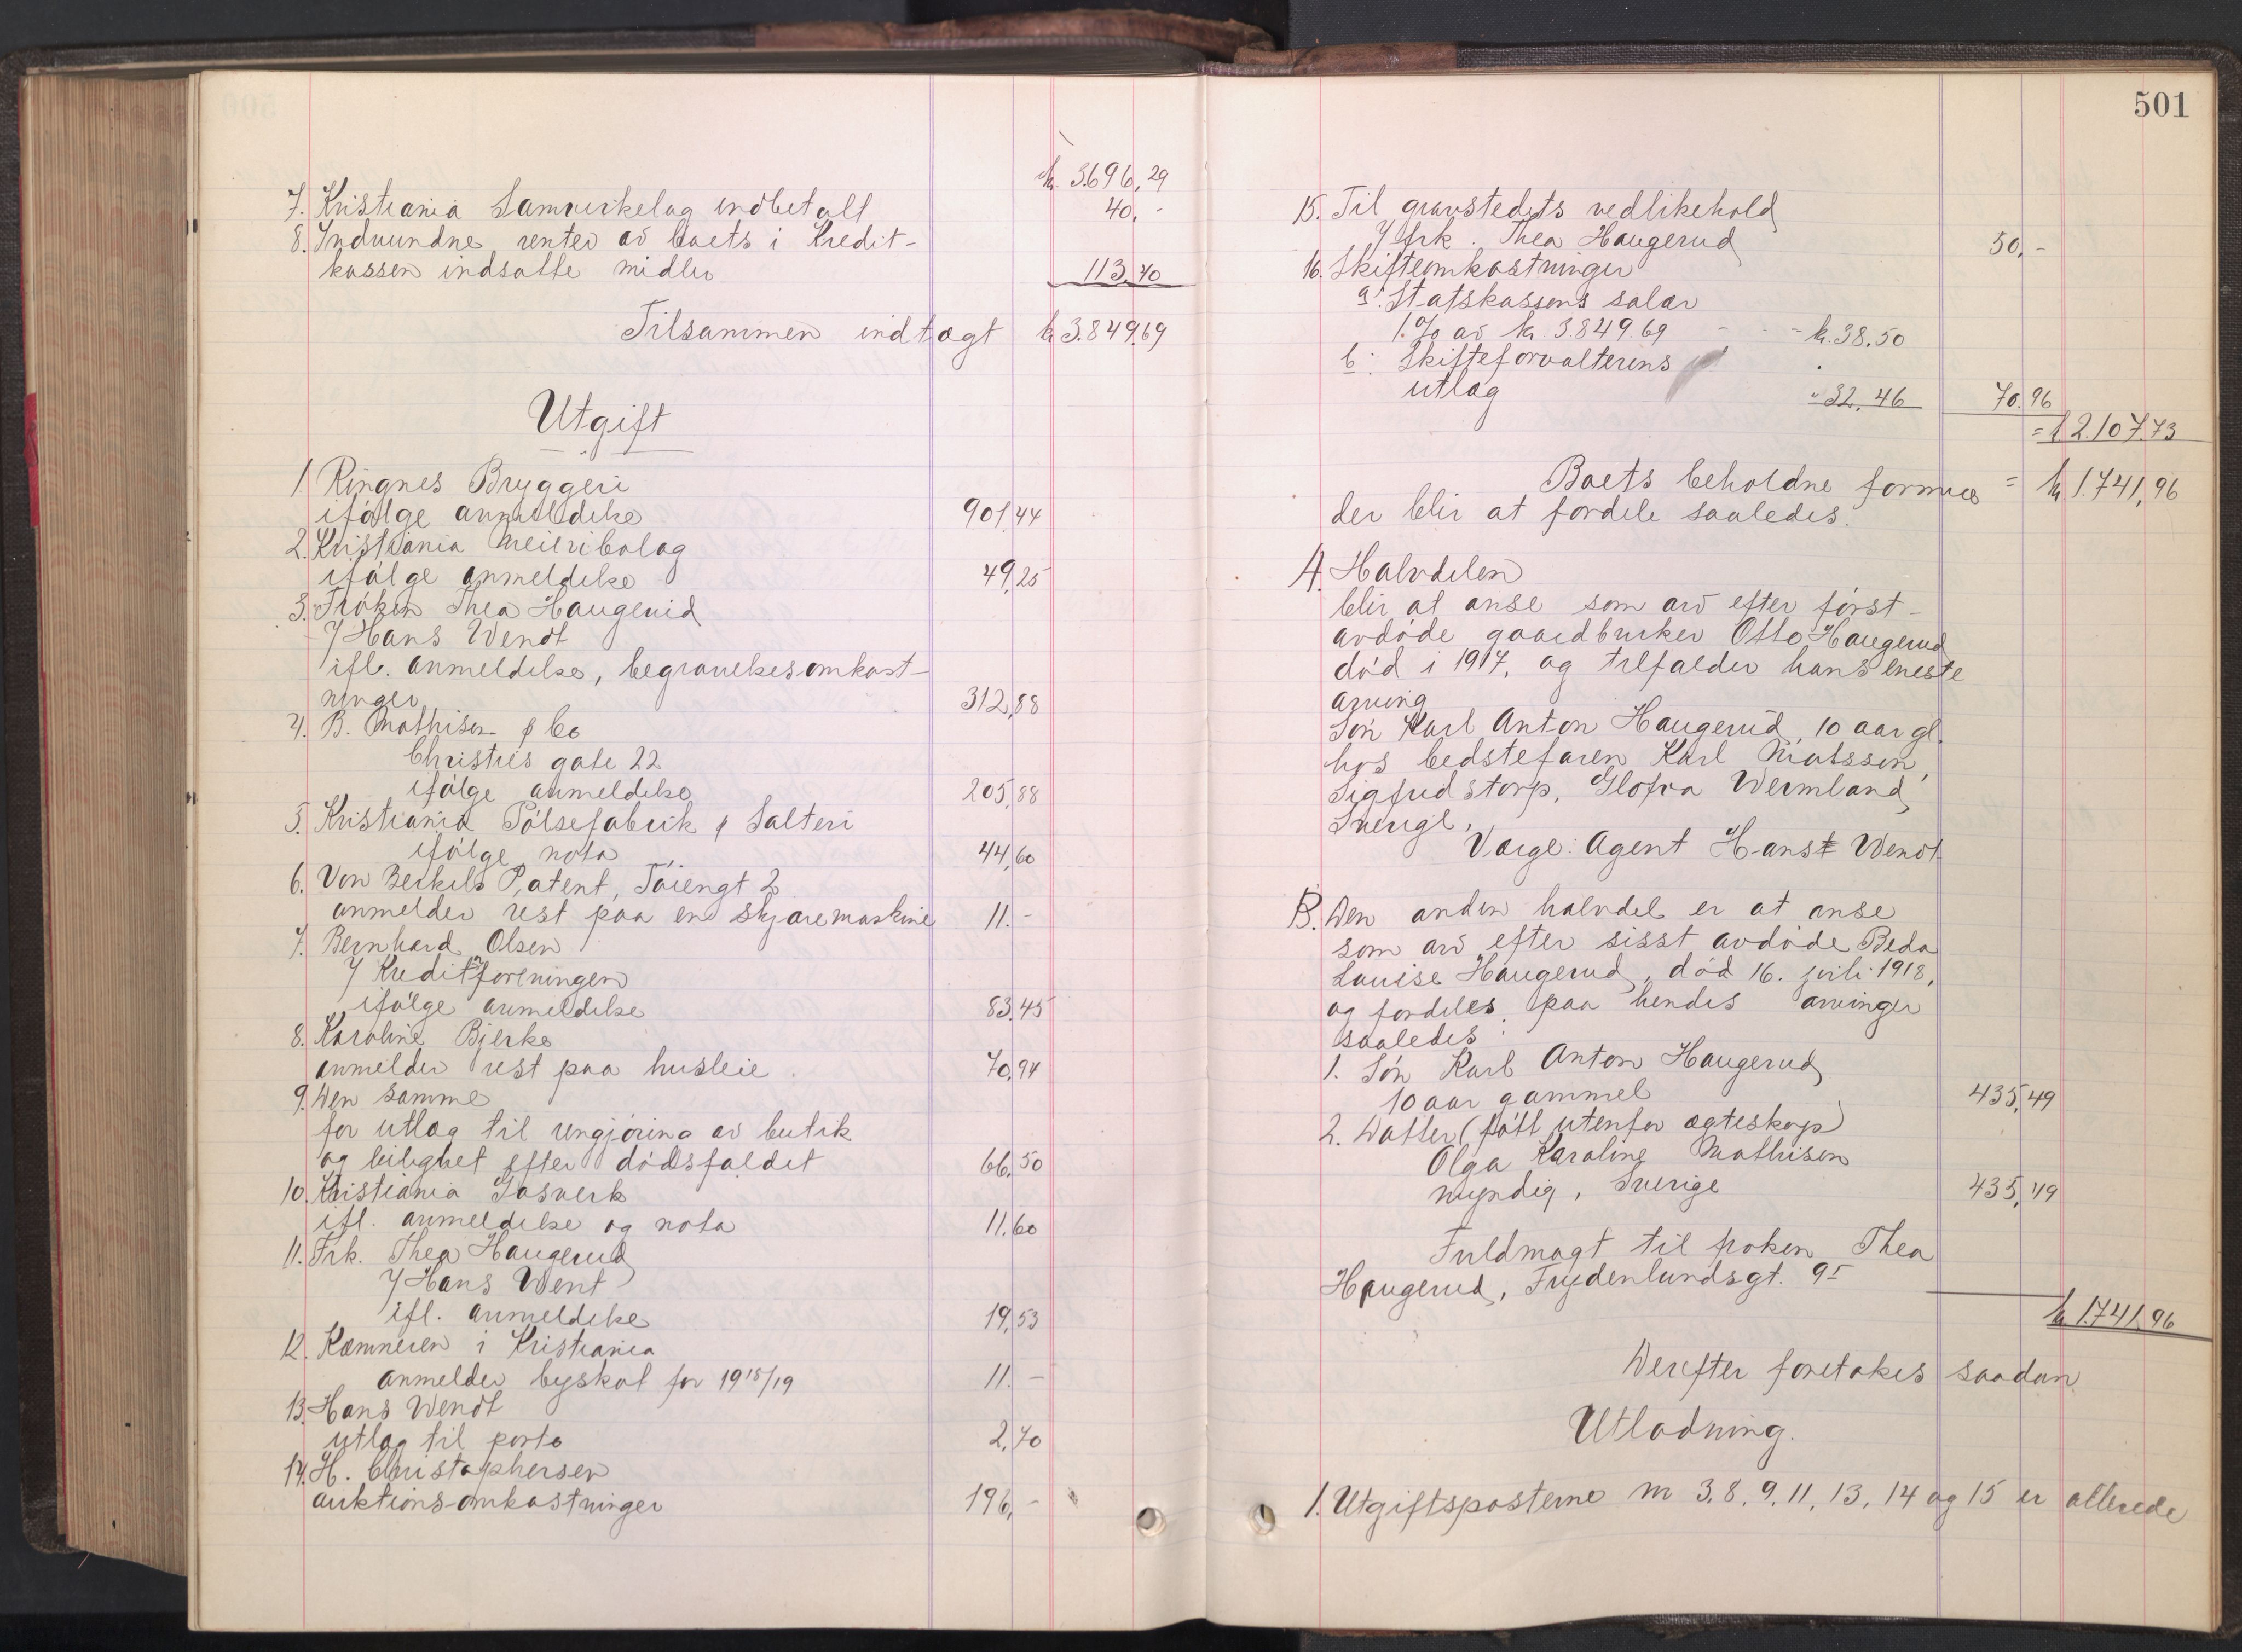 kr. 3.696,29
7. Kristiania Samvirkelag indbetalt 40,-
8. Indvundne renter av boets i Kredit-
kassen indsatte midler 113,40
Tilsammen indtægt kr 3.849,69
Utgift
1. Ringnes Bryggeri
ifølge anmeldelse 901,44
2. Kristiania Meieribolag
ifølge anmeldelse 49,25
3. Frøken Thea Haugerud
v/ Hans Wendt
ifl. anmeldelse, begravelsesomkost-
ninger 312,88
4. B. Mathisen & Co
Christies gate 22
ifølge anmeldelse 205,88
5. Kristiania Pølsefabrik & Salteri
ifølge nota 44,60
6. Von Berkels Patent, Tøiengt 2
anmelder rest paa en skjæremaskine 11.-
7. Bernhard Olsen
v/ Kreditforeningen
ifølge anmeldelse 83,45
8. Karoline Bjerke
anmelder rest paa husleie. 70,94
9. Den samme
for utlæg til rengjøring av butik
og leilighet efter dødsfaldet 66,50
10. Kristiania Gasverk
ifl. anmeldelse og nota 11.60
11. Frk. Thea Haugerud
v/ Hans Went
ifl. anmeldelse 19,53
12. Kæmneren i Kristiania
anmelder byskat for 1918/19 11.-
13. Hans Wendt
utlæg til porto 2,70
14. H. Christophersen
auktionsomkostninger 196,-
501
15. Til gravstedets vedlikehold
v/ frk. Thea Haugerud 50,-
16. Skifteomkostninger
a: Statskassens salær
1.% av kr. 3.849.69 - - = kr. 38.50
b: Skifteforvalterens
utlæg " 32,46 70.96
= kr 2.107.73
Boets beholdne formue = kr 1.741,96
der blir at fordele saaledes:
A. Halvdelen
blir at anse som arv efter først-
avdøde gaardbruker Otto Haugerud
død i 1917, og tilfalder hans eneste
arving
Søn Karl Anton Haugerud, 10 aar gl.
hos bedstefaren Karl Matsson,
Sigfridstorp, Glofva Wermland,
Sverige,
Værge: Agent Hans Wendt
B. Den anden halvdel er at anse
som arv efter sisst avdøde Beda
Louise Haugerud, død 16. juli 1918,
og fordeles paa hendes arvinger
saaledes:
1. Søn Karl Anton Haugerud
10 aar gammel 435,49
2. Datter (født utenfor ægteskap)
Olga Karoline Mathisen
myndig, Sverige 435,49
Fuldmagt til frøken Thea
Haugerud, Frydenlundsgt. 9 I
kr 1.741,96
Derefter foretakes saadan
Utlodning.
1. Utgiftsposterne nr 3, 8, 9, 11, 13, 14 og 15 er allerede